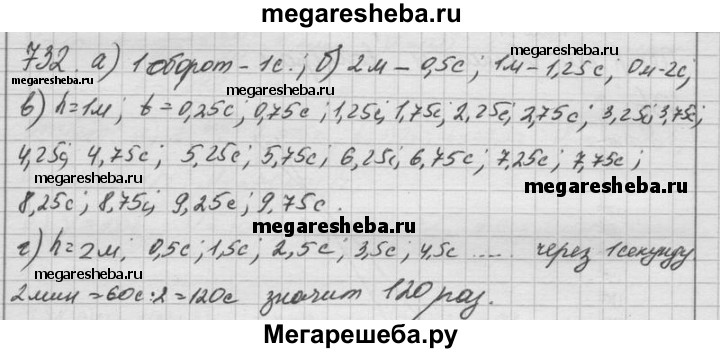 megaresheba.ru
732. а) 1 оборот – 1с.; б) 2м – 0,5с; 1м – 1,25с; 0м-2с;
megaresheba.ru megaresheba.ru
в) h=1м; t=0,25с; 0,75с; 1,25с; 1,75с; 2,25с; 2,75с; 3,25с; 3,75с;
4,25с; 4,75с; 5,25с; 5,75с; 6,25с; 6,75с; 7,25с; 7,75с;
megaresheba.ru megaresheba.ru
8,25с; 8,75с; 9,25с; 9,75с.
megaresheba.ru
г) h=2м; 0,5с; 1,5с; 2,5с; 3,5с; 4,5с ..... через 1 секунду
megaresheba.ru
2 мин = 60с:2=120с значит 120 раз.
megaresheba.ru
Мегарешеба.ру